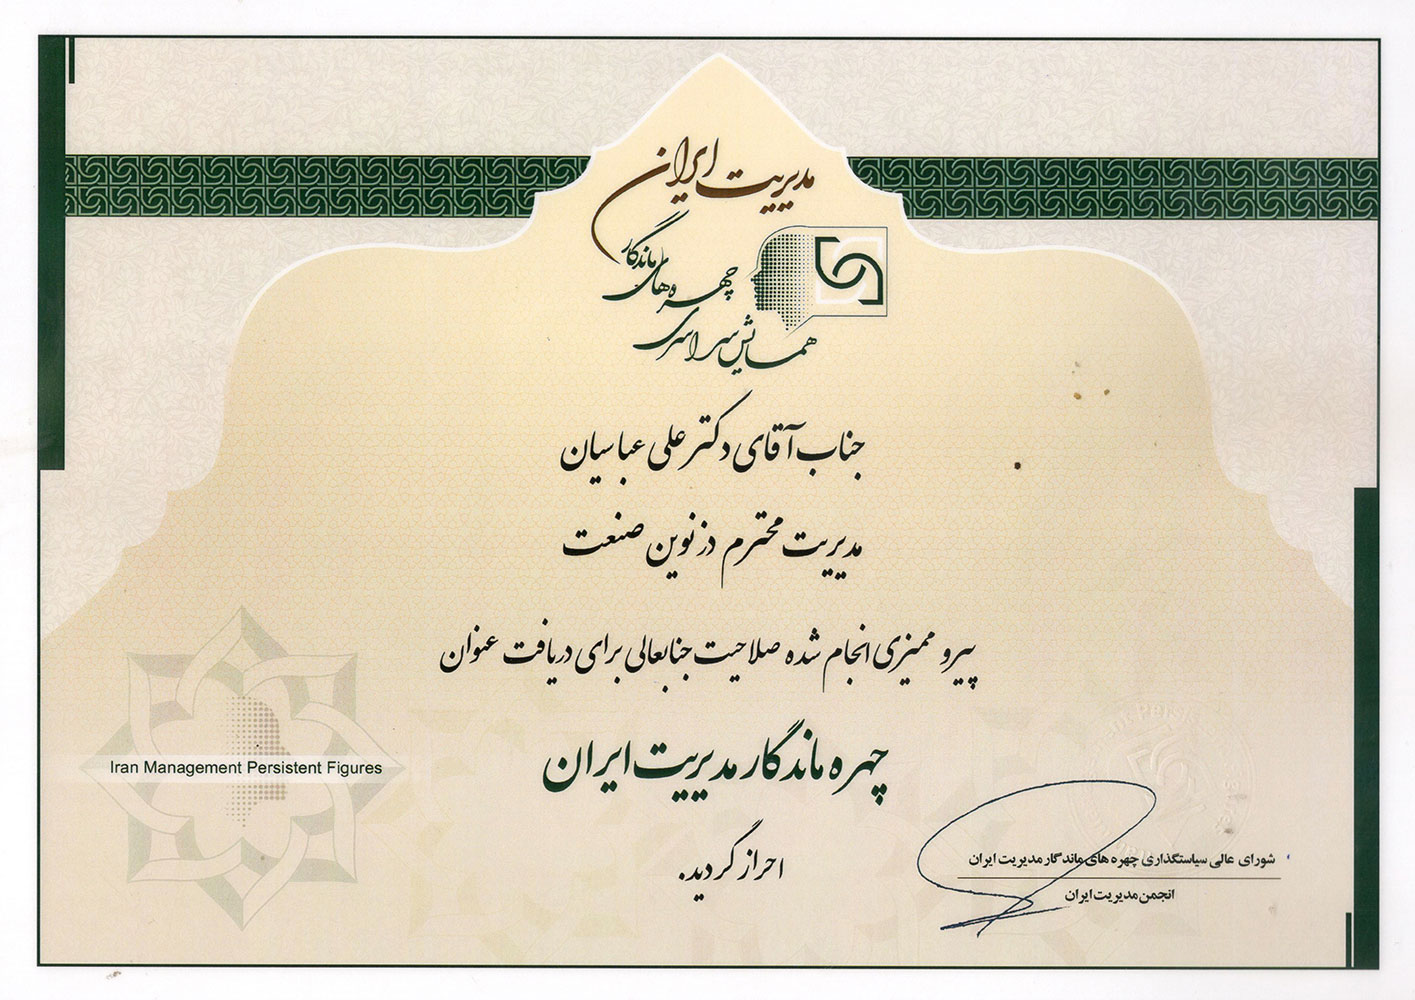 مدیریت ایران
همایش سراسری چهره های ماندگار
جناب آقای دکتر علی عباسیان
مدیریت محترم دز نوین صنعت
پیرو ممیزی انجام شده صلاحیت جنابعالی برای دریافت عنوان
Iran Management Persistent Figures
چهره ماندگار مدیریت ایران
احراز گردید.
شورای عالی سیاستگذاری چهره های ماندگار مدیریت ایران
انجمن مدیریت ایران